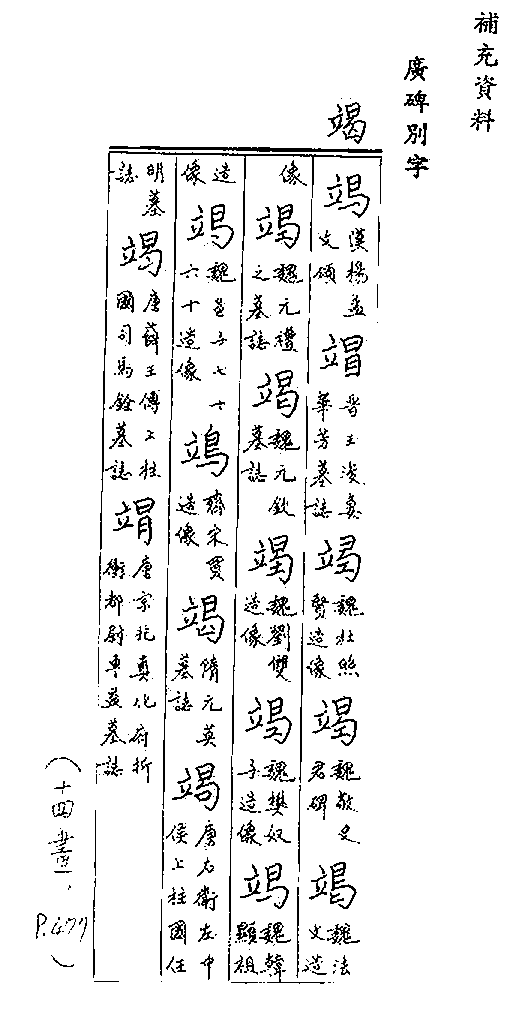 補充資料
廣碑別字
竭
竭漢楊孟文頌 竭晉王浚妻華芳墓誌 竭魏杜照賢造像 竭魏敬史君碑 竭魏法文造
像 竭魏元禮之墓誌 竭魏元欽墓誌 竭魏劉雙造像 竭魏樊奴子造像 竭魏韓顯祖
造像 竭魏邑子七十六十造像 竭齊宋買造像 竭隋元英墓誌 竭唐右衛左中侯上柱國任
明墓誌 竭唐薛王傅上柱國司馬銓墓誌 竭唐宗抗真化府折衝都尉專墓誌
(十四畫,P.477)